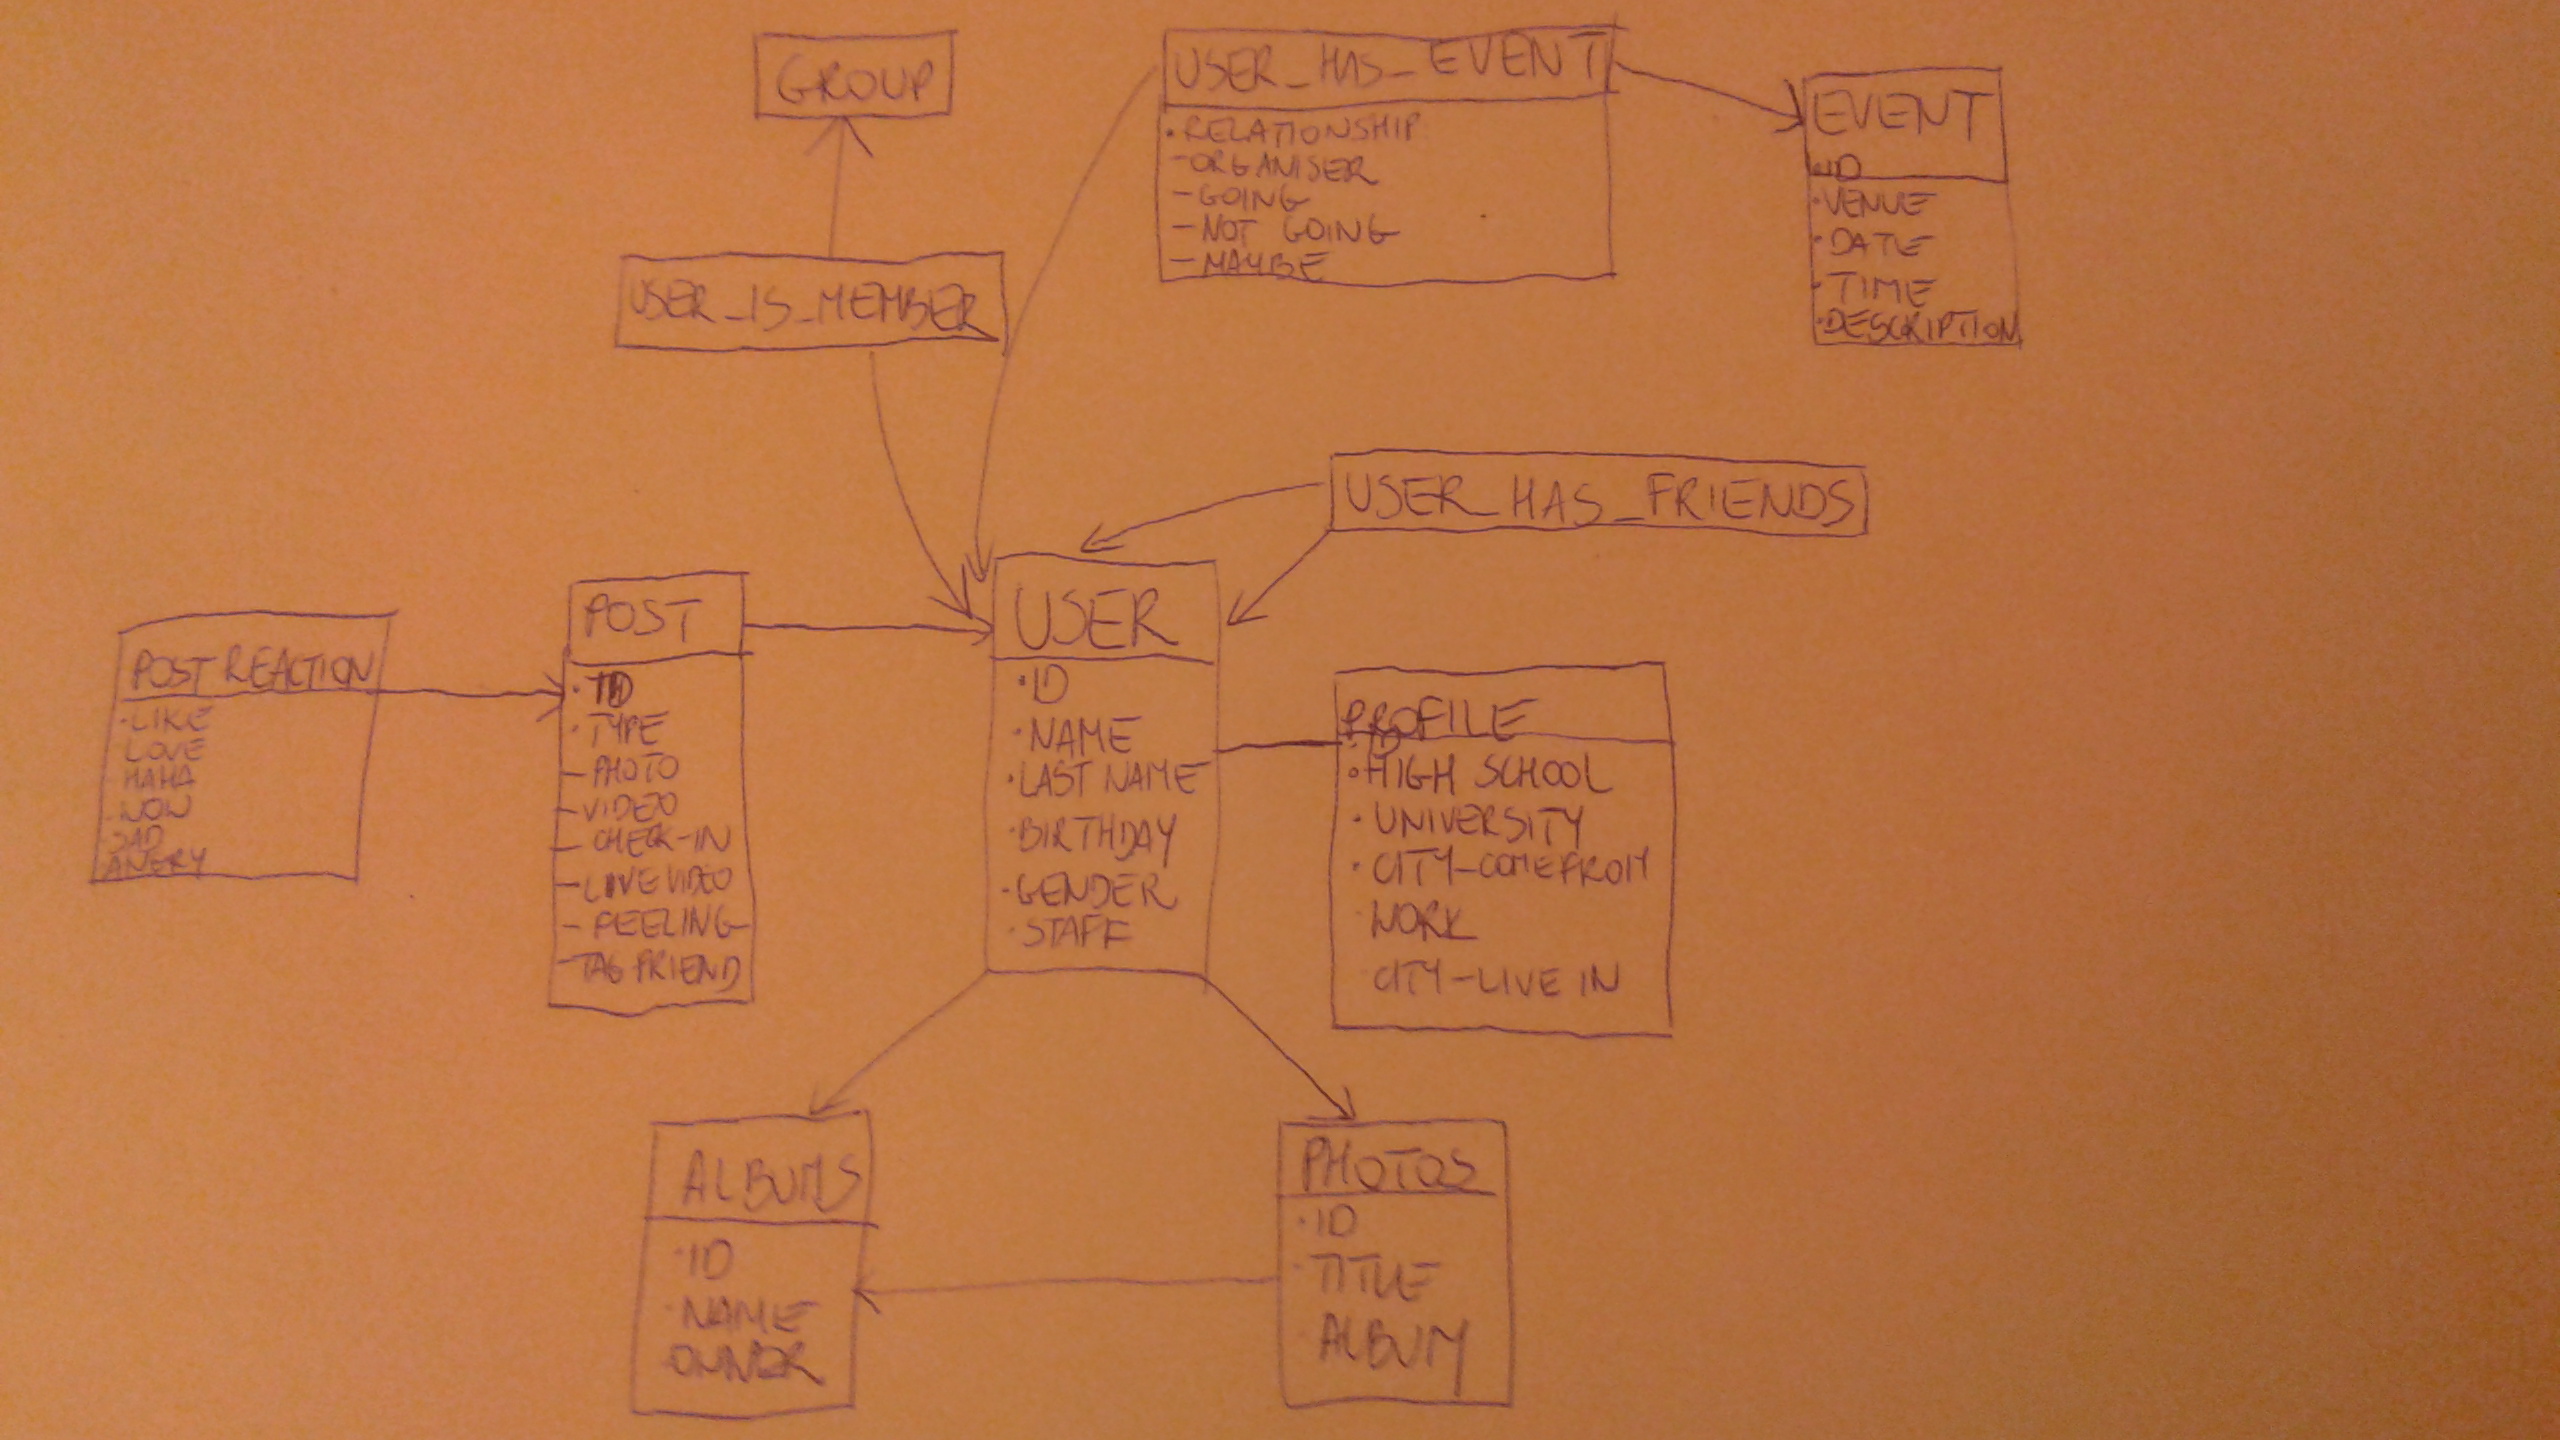 GROUP
USER_HAS_EVENT
• RELATIONSHIP
- ORGANISER
- GOING
- NOT GOING
- MAYBE
EVENT
• ID
• VENUE
• DATE
• TIME
• DESCRIPTION
USER_IS_MEMBER
USER_HAS_FRIENDS
POST REACTION
• LIKE
LOVE
HAHA
WOW
SAD
ANGRY
POST
• ID
• TYPE
- PHOTO
- VIDEO
- CHECK-IN
- LIVE VIDEO
- FEELING
- TAG FRIEND
USER
• ID
• NAME
• LAST NAME
• BIRTHDAY
• GENDER
• STAFF
PROFILE
• ID
• HIGH SCHOOL
• UNIVERSITY
• CITY-COMEFROM
WORK
CITY-LIVE IN
ALBUMS
• ID
• NAME
OWNER
PHOTOS
• ID
• TITLE
ALBUM